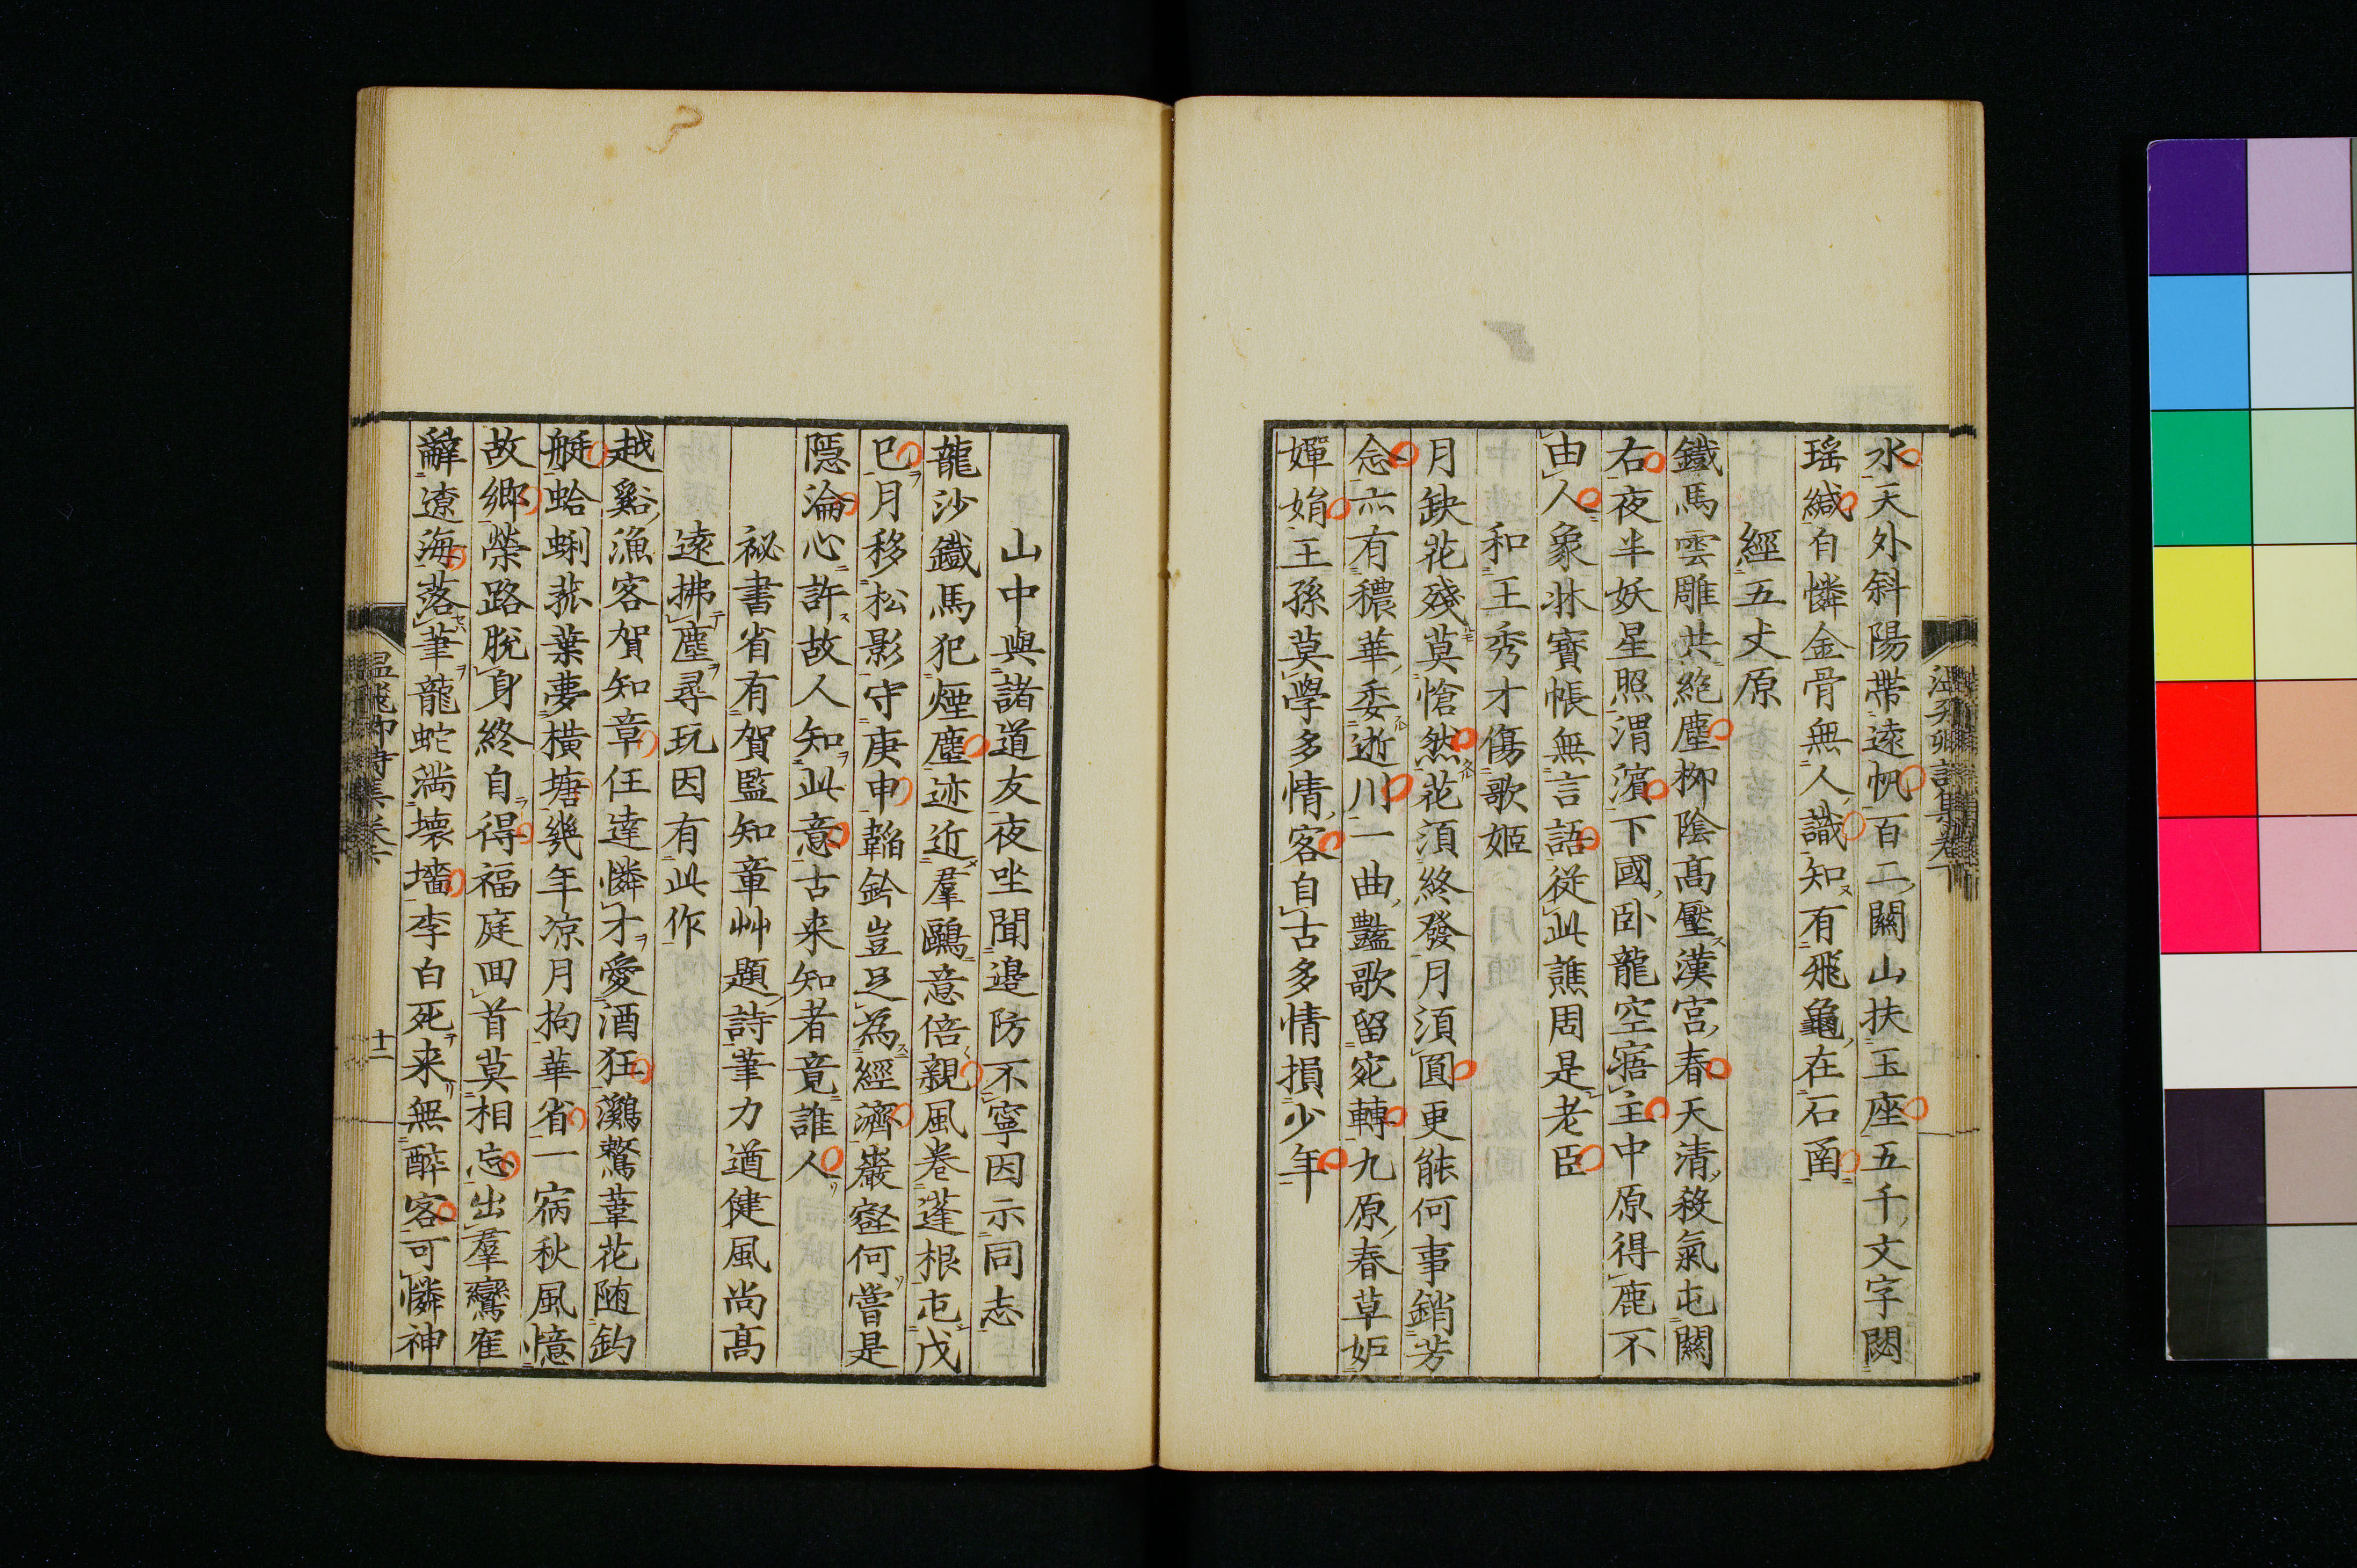 水天外斜陽帶遠帆百二關山扶玉座五千文字閟
瑤緘自憐金骨無人識知有飛龜在石函
經五丈原
鐵馬雲雕共絶塵柳陰髙壓漢宮春天清殺氣屯關
右夜半妖星照渭濱下國卧龍空寤主中原得鹿不
由人象牀寶帳無言語從此譙周是老臣
和王秀才傷歌姬
月缺花殘莫愴然花須終發月須圓更能何事銷芳
念亦有穠華委逝川一曲豔歌留宛轉九原春草妒
嬋娟王孫莫學多情客自古多情損少年
山中與諸道友夜坐聞邊防不寧因示同志
龍沙鐵馬犯煙塵迹近羣鷗意倍親風卷蓬根屯戊
巳月移松影守庚申韜鈐豈足為經濟巖壑何嘗是
隱淪心許故人知此意古来知者竟誰人
祕書省有賀監知章艸題詩筆力遒健風尚髙
遠拂塵尋玩因有此作
越谿漁客賀知章任達憐才愛酒狂鸂鶒葦花随釣
艇蛤蜊菰葉夢橫塘幾年凉月拘華省一宿秋風憶
故鄉榮路脫身終自得福庭回首莫相忘出羣鸞雀
辭遼海落筆龍蛇滿壊墻李白死来無醉客可憐神
温飛卿詩集卷下
十二